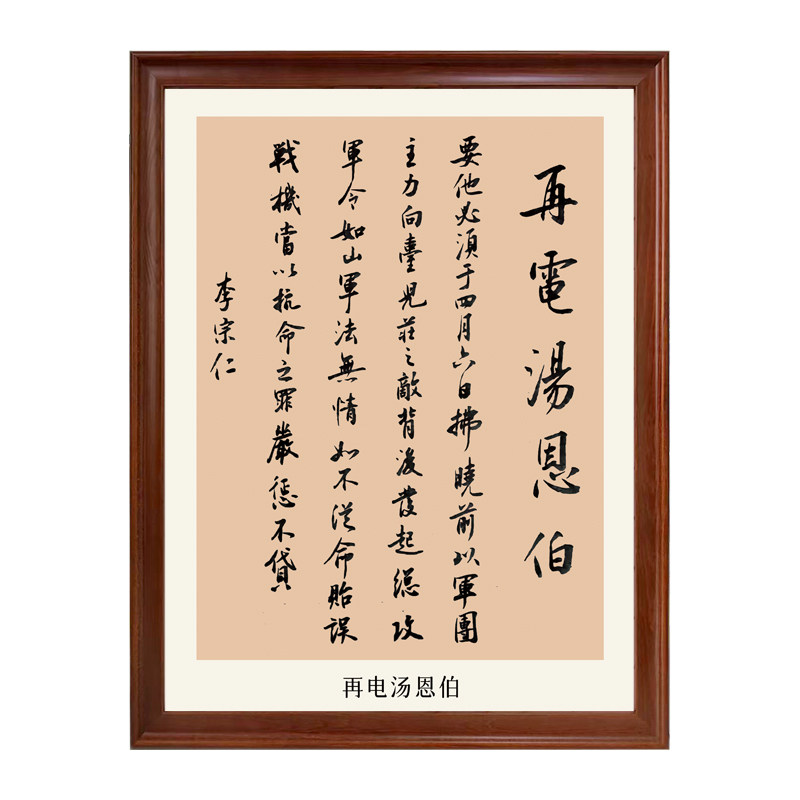 再電湯恩伯
要他必須于四月六日拂曉前以軍團
主力向臺児莊之敵背後發起總攻
軍令如山軍法無情如不從命貽誤
戰機當以抗命之罪嚴懲不貸
李宗仁
再电汤恩伯